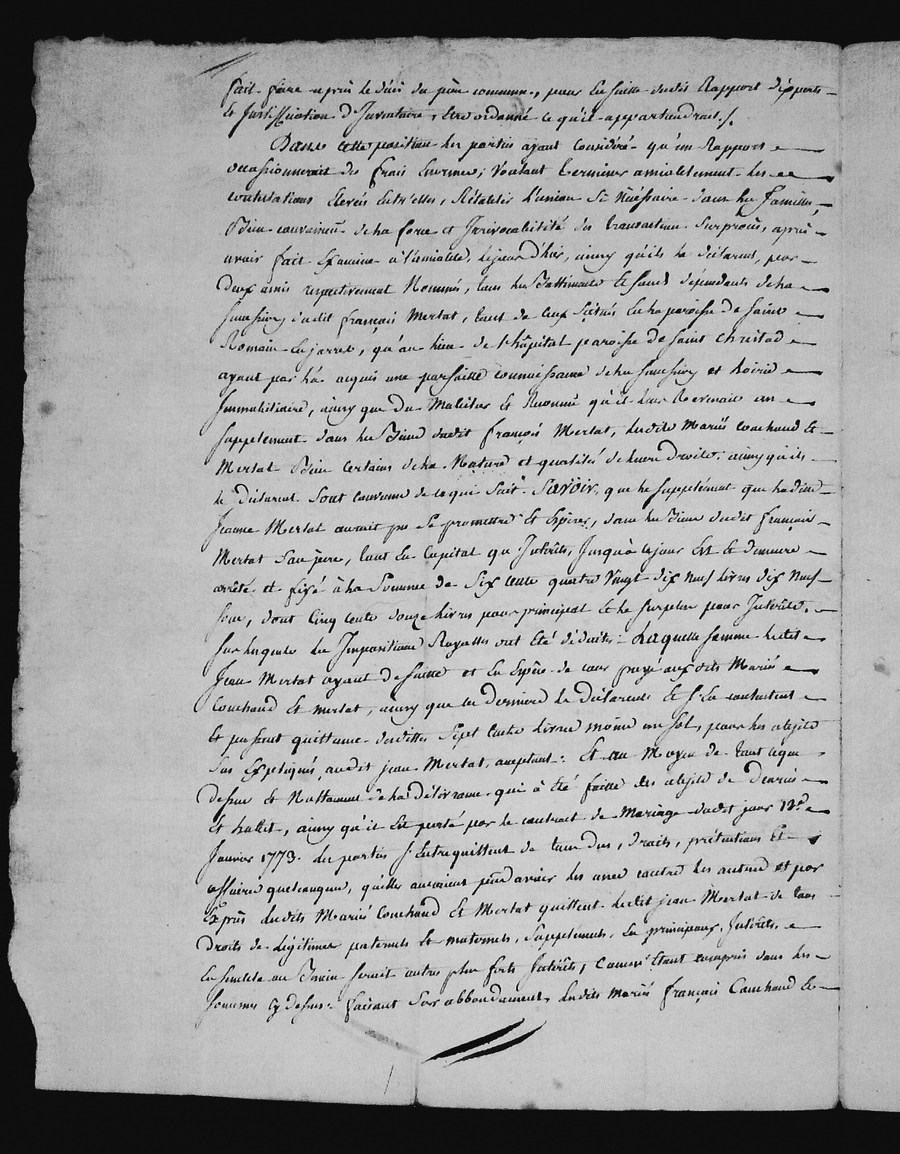 fait faire après le décès du père commun, pour en suitte dudit Rapport d'experts
et Justiffication d'Inventaire, être ordonné ce qu'il appartiendrait./.
Dans cette position les parties ayant considéré qu'un Rapport
occasionnerait des frais Enormes; Voulant terminer amiablement les
contestations Elevées Entr'elles, Rétablir l'union si Nécéssaire dans les familles,
Bien convaincus de la force et Irrévocabilité des transactions sur procès, après
avoir fait Examiner à l'amiable, le jour d'hier, ainsy qu'ils le déclarent, par
deux amis respectivement Nommés, tous les Battiments et fonds dépendants de la
du dit françois Mertat, tant de ceux situés en la paroisse de Saint
Romain en jarret, qu'au lieu de l'hôpital paroisse de Saint Christod
ayant par là acquis une parfaitte connoissance de la et hoirie
Immobiliaire, ainsy que du Mobilier Et Reconnu qu'il leur Revenait un
supplement dans les Biens dudit françois Mertat, lesdits Mariés Couchoud Et
Mertat Bien certains de la Nature et qualités de leurs droits; ainsy qu'ils
le déclarent sont convenus de ce qui suit. Savoir, que le supplément que ladite
Jeanne Mertat aurait pu se promettre Et Espérer, dans les Biens dudit françois
Mertat son père, tant En Capital qu'Intérêts, Jusqu'à ce jour Est Et demeure
arrêté et fixé à la Somme de Six cents quatre Vingt dix neuf livres dix neuf
sous, dont Cinq cents douze livres pour principal Et le surplus pour Intérêts,
sur lesquels les Impositions Royalles ont Eté déduites: Laquelle somme ledit
Jean Mertat ayant dessuitte et En Espèces de cours payé aux dits Mariés
Couchoud Et Mertat, ainsy que ces derniers le déclarent Et s'En contentent
Et passent quittance desdittes Sept Cents livres moins un sol, pour les objets
sus Expliqués, audit jean Mertat, acceptant: Et au Moyen de tout ce que
dessus Et Nottamment de la délivrance qui à été faitte des objets de denrées
Et , ainsy qu'il Est porté par le contract de Mariage dudit jour 12.e
Janvier 1773. les parties s'Entrequittent de tous dus, droits, prétentions Et
affaires quelconques, qu'elles auraient peu avoir les unes contre les autres et par
Exprès lesdits Mariés Couchoud Et Mertat quittent ledit jean Mertat de tous
droits de légitimes paternels Et maternels, Supplement, En principaux, Intérêts,
serait autres plus forts Intérêts, comme Etant compris dans les
sommes cy dessus: faisant Sur abbondament, lesdits mariés françois Couchoud Et